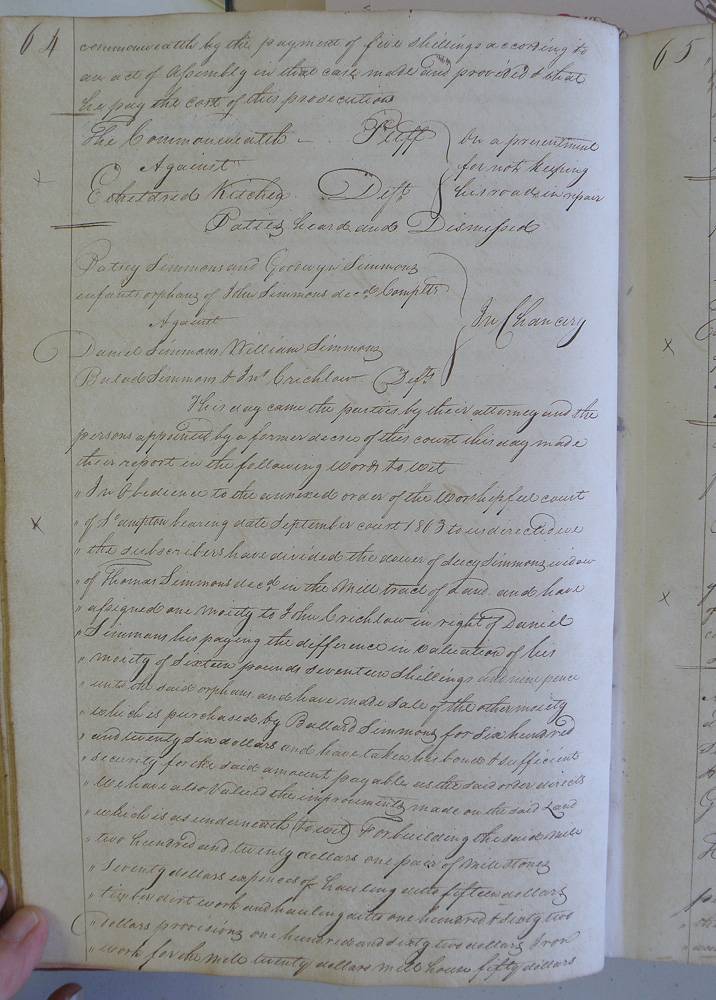 64
commonwealth by the payment of five shillings according to
an act of Assembly in that case made and provided & that
he pay the cost of this prosecution
The Commonwealth — Pltff
Against
Etheldred Kitchen Deft
On a presentment
for not keeping
his road in repair
Paties heard and Dismissed
Patsey Simmons and Goodwyn Simmons
infants orphans of John Simmons decd. Complts
Against
Daniel Simmons, William Simmons
Balad Simmons & Jno. Crichlow Defts
In Chancery
This day came the parties by their attorney and the
persons appointed by a former decree of this court this day made
their report in the following words to wit
" In Obedience to the annexed order of the Worshipful court
" of So.ampton bearing date September court 1803 to us directed we
" the subscribers have divided the dower of Lucy Simmons widow
" of Thomas Simmons decd. in the Mill tract of Land and have
" assigned one moiety to John Crichlow in right of Daniel
" Simmons his paying the difference in valuation of his
" moiety of Sixteen pounds seventeen Shillings and nine pence
" unto the said orphans and have made sale of the other moiety
" which is purchased by Ballard Simmons for Six hundred
" and twenty Six dollars and have taken his bond & sufficient
" security for the said amount payable as the said order directs
" We have also Valued the improvements made on the said Land
" which is as underneath (to wit) For building the said Mill
" two hundred and twenty dollars one pair of Mill Stones
" Seventy dollars expences of hauling ditto fifteen dollars
" timber dirt work and hauling ditto one hundred & sixty two
" dollars provisions one hundred and sixty two dollars Iron
" work for the Mill twenty dollars mill house fifty dollars
65